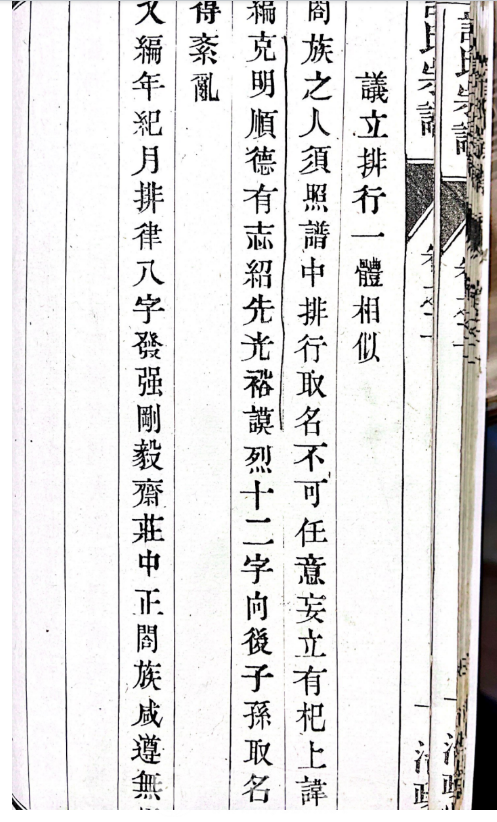 氏宗譜
卷之二
一
議立排行一體相似
閤族之人須照譜中排行取名不可任意妄立有杞上諱
編克明順德有志紹先光裕謨烈十二字向後子孫取名
得紊亂
又編年紀月排律八字發强剛毅齋莊中正閤族咸遵無